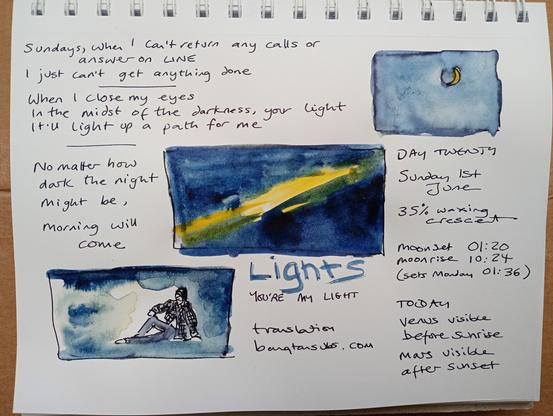 Sundays, when I can't return any calls or
answer on LINE
I just can't get anything done
When I close my eyes
In the midst of the darkness, your light
It'll light up a path for me
No matter how
dark the night
might be,
morning will
come
Lights
YOU'RE MY LIGHT
translation
bangtansubs.com
DAY TWENTY
Sunday 1st
June
35% waxing
crescent
moonset 01:20
moonrise 10:24
(sets Monday 01:36)
TODAY
Venus visible
before sunrise
Mars visible
after sunset